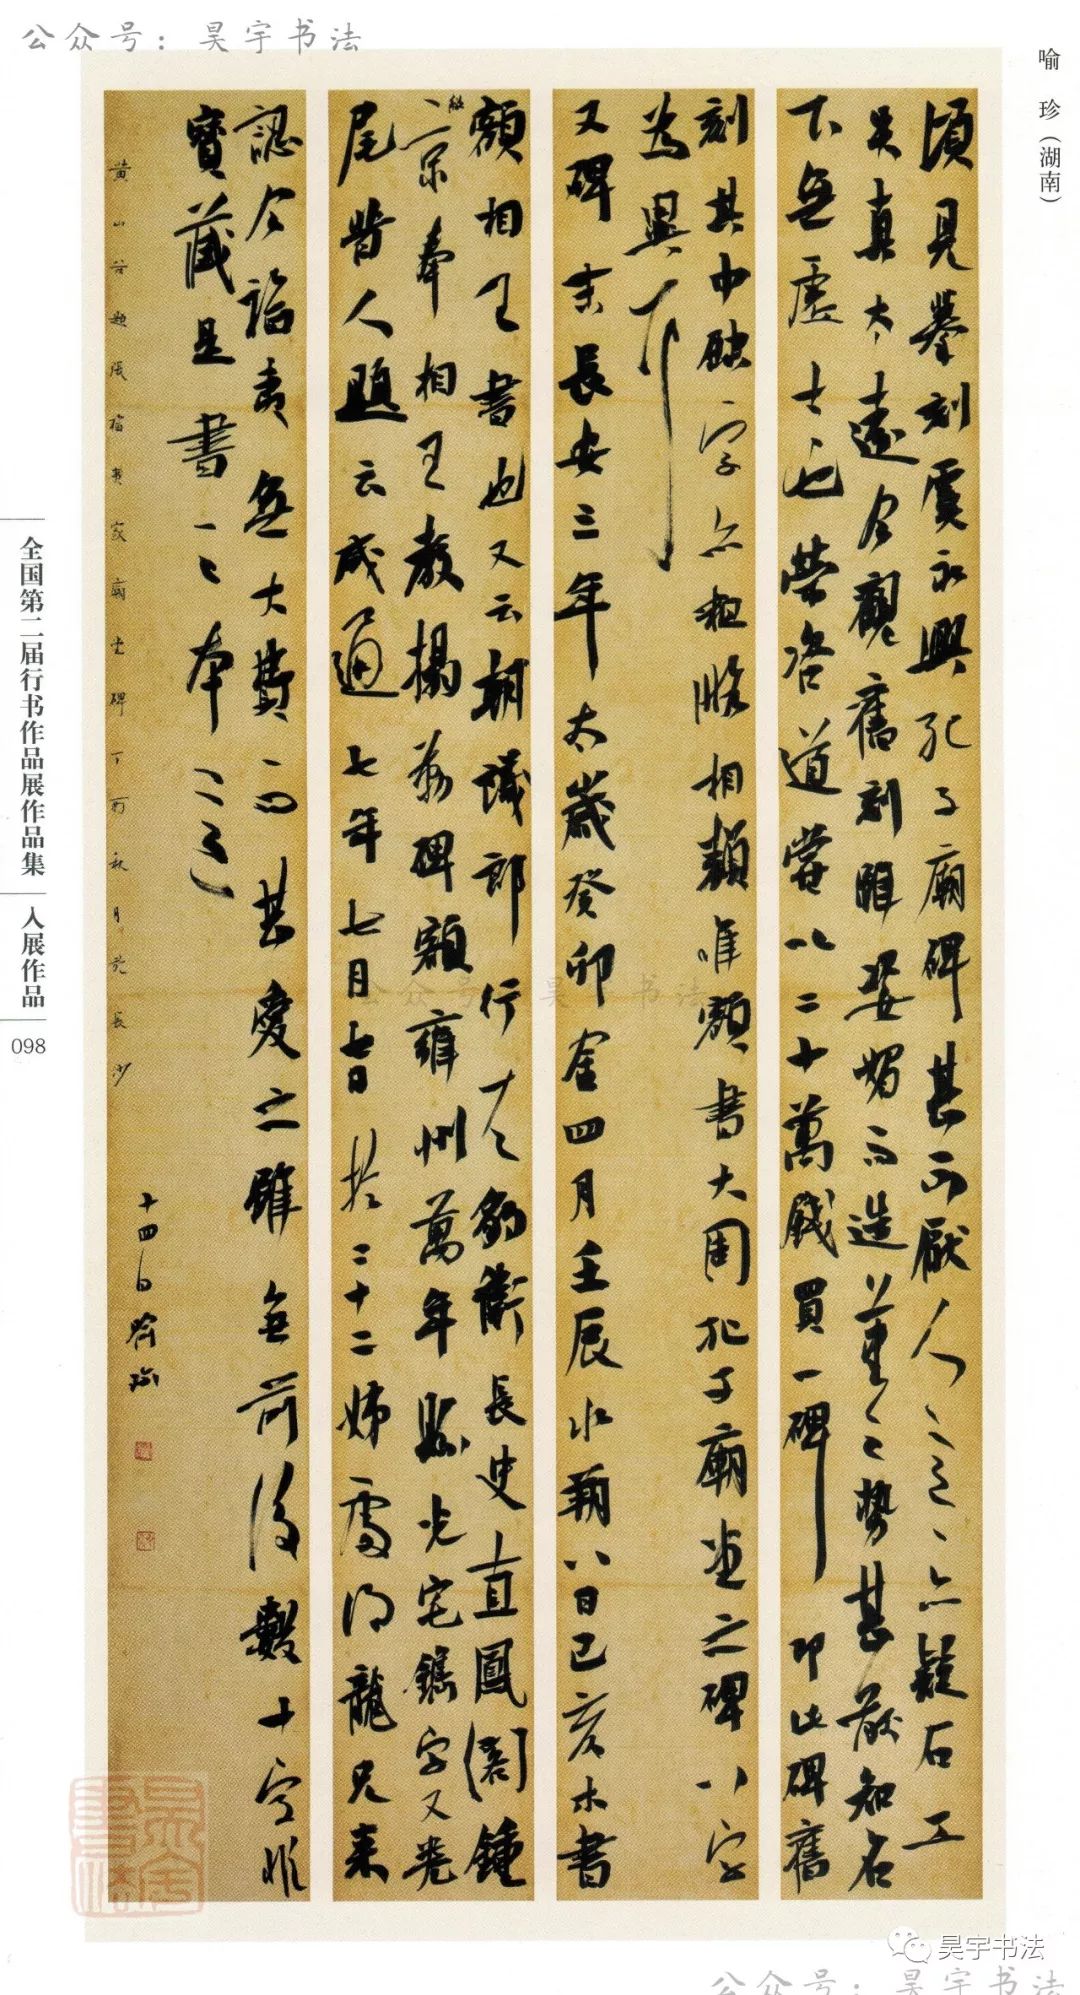 公众号：昊宇书法
喻 珍（湖南）
頃見摹刻虞永興孔子廟碑甚不厭人意意亦疑石工
失真太遠今觀舊刻雖姿媚而造筆之勢甚遒知名
下無虛士也榮咨道嘗以二十萬錢買一碑即此碑舊
刻其中缺字亦粗勝相類唯額書大周孔子廟堂之碑八字
為異耳
又碑末長安三年太歲癸卯金四月壬辰水朔八日己亥木書
額相王書也又云朝議郎行左豹衛長史直鳳閣鍾
紹京奉相王教搨勒碑額雍州萬年縣光宅鐫字又卷
尾昔人題云咸通七年七月七日於二十二姊處得龍兄來
認今詣青無大費而甚愛之雖無前後數十字惟
寶藏是書之本之意
黄山谷題張福夷家廟堂碑丁酉秋月於長沙
十四白喻珍
全国第二届行书作品展作品集
入展作品
098
公众号：昊宇书法
昊宇书法
昊宇书法
公众号：昊宇书法